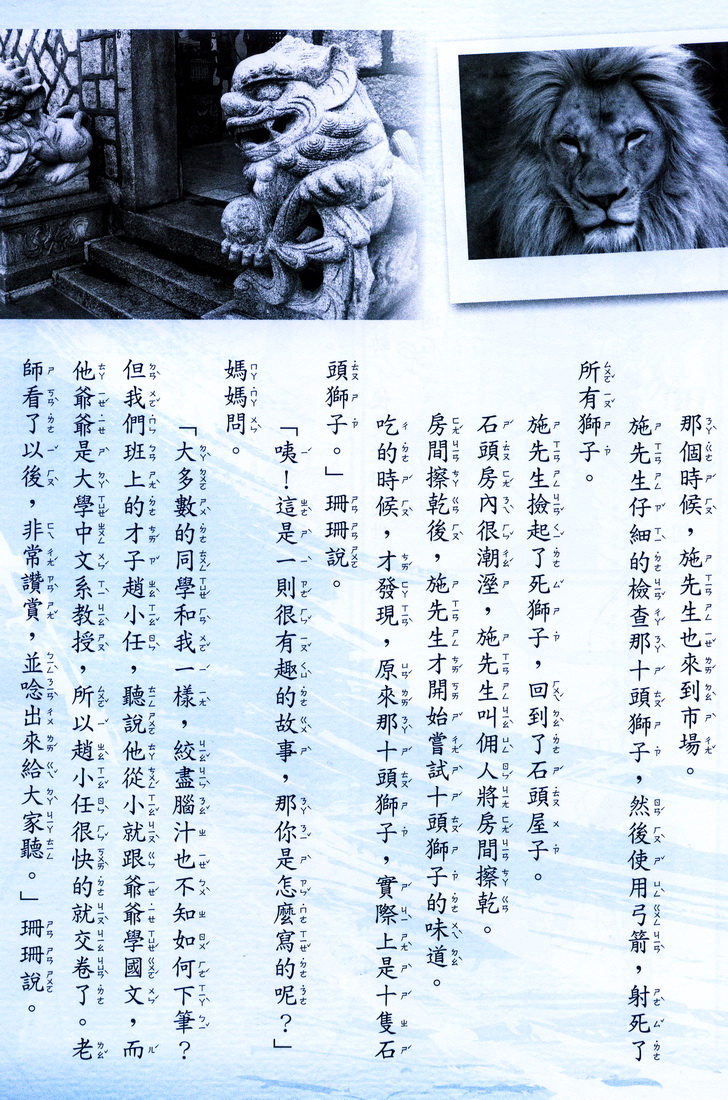 那個時候，施先生也來到市場。
施先生仔細的檢查那十頭獅子，然後使用弓箭，射死了
所有獅子。
施先生撿起了死獅子，回到了石頭屋子。
石頭房內很潮溼，施先生叫佣人將房間擦乾。
房間擦乾後，施先生才開始嘗試十頭獅子的味道。
吃的時候，才發現，原來那十頭獅子，實際上是十隻石
頭獅子。」珊珊說。
「咦！這是一則很有趣的故事，那你是怎麼寫的呢？」
媽媽問。
「大多數的同學和我一樣，絞盡腦汁也不知如何下筆？
但我們班上的才子趙小任，聽說他從小就跟爺爺學國文，而
他爺爺是大學中文系教授，所以趙小任很快的就交卷了。老
師看了以後，非常讚賞，並唸出來給大家聽。」珊珊說。